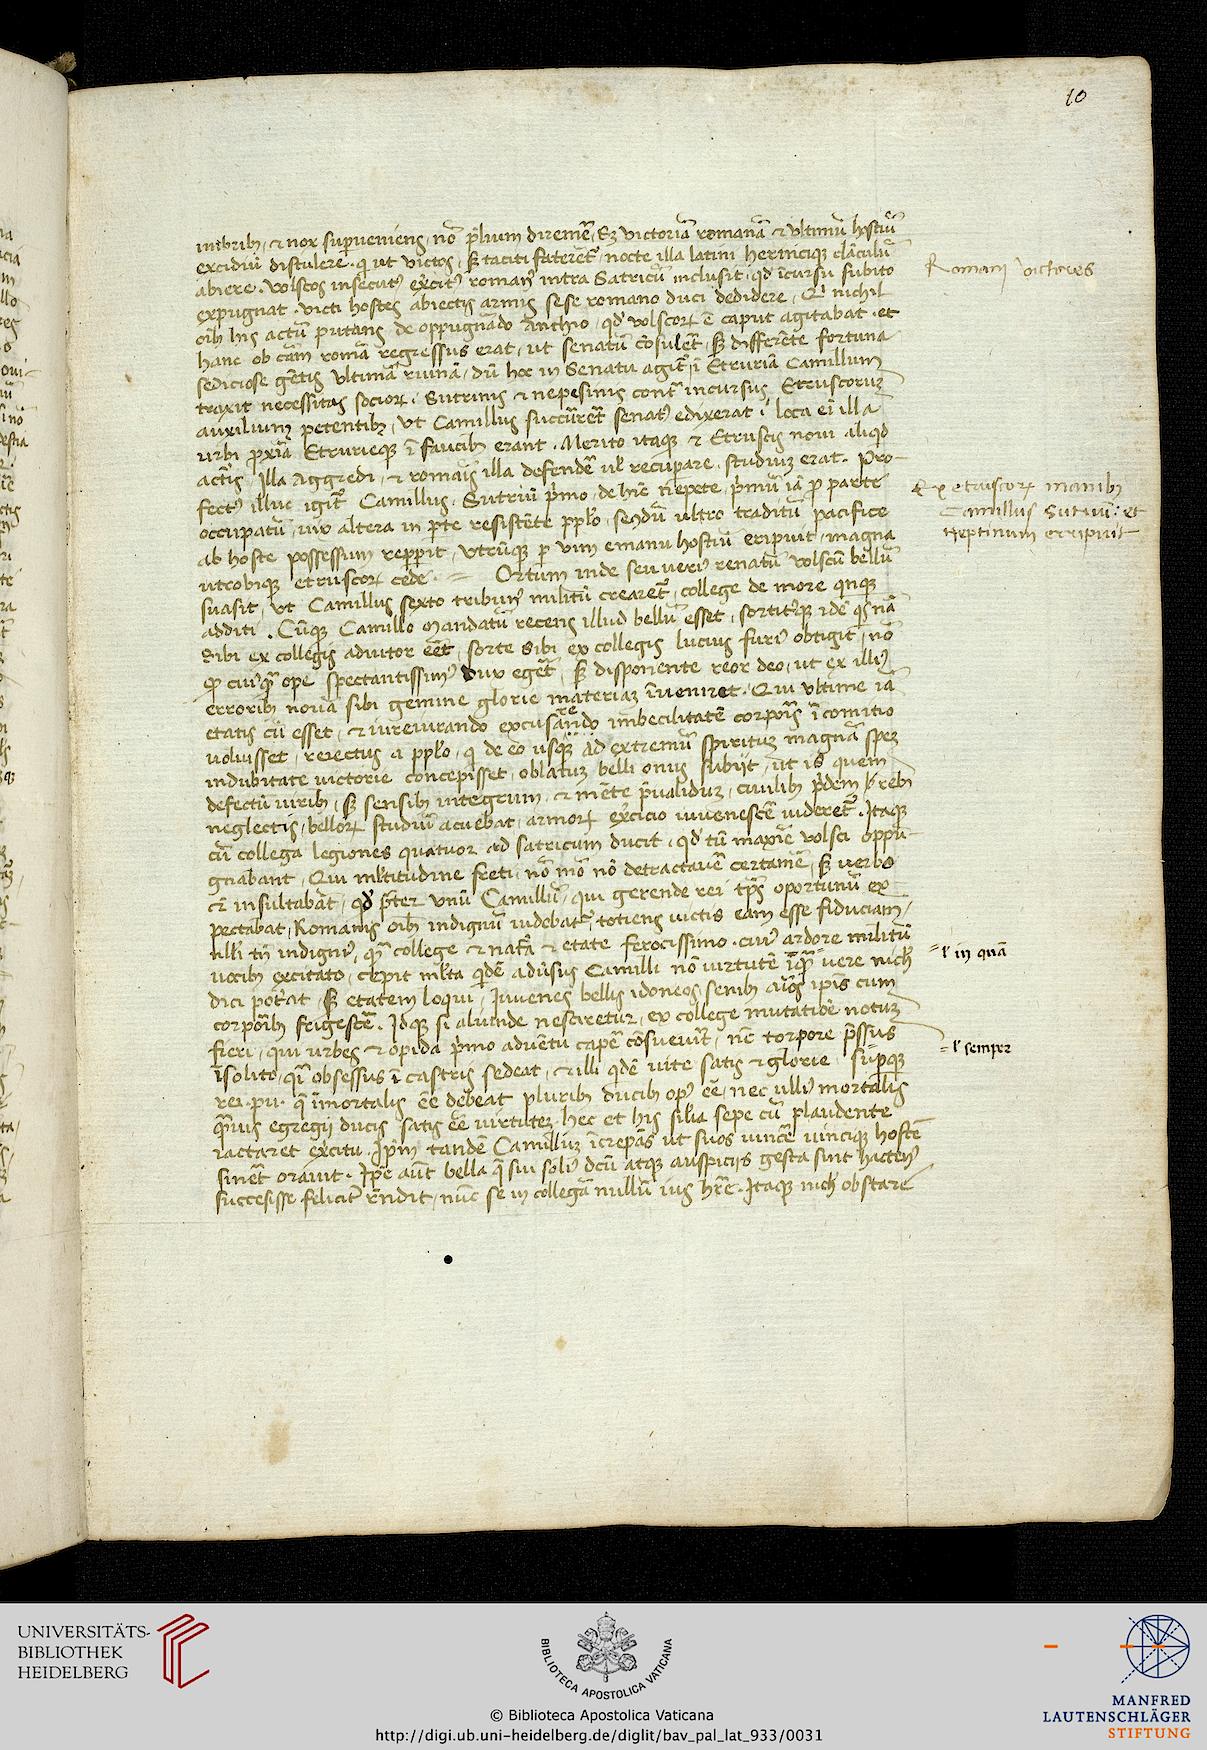 10
imbrib, et nox superveniens, nõ prelium diremẽ, Sz victoriã romanã et ultimũ hostiũ
excidiũ distulere. qi ut victos, sz taciti faterent, nocte illa latini hernicique clãculũ
abiere. Volscos insecut exercit roman intra Satricũ inclusit, qd ĩcursu subito
expugnat. victi hostes abiectis armis sese romano duci dedidere, Qi nichil
oĩb his actũ putans de oppugnãdo anthio, qd volscor ẽ caput agitabat. et
hanc ob cãm romã regressus erat, ut senatũ cõsulet, sz differẽte fortuna
sediciose gẽtis ultimã ruinã, dũ hec in Senatu agit, ĩ Etruriã Camillum
traxit necessitas socior. Sutrinis et nepesinis cont incursus Etruscorum
auxilium petentibz, ut Camillus succurret senat edixerat, loca ei illa
urbi proxĩa Etrurieque ĩ faucib erant. Merito itaque et Etruscis novi aliqd
actis, illa Aggredi, et romais illa defendẽ ul recupare, studium erat. Pro-
fect illuc igit Camillus, Sutriũ primo, dehĩc nepete, primũ iã pro parte
occupatũ, vix altera in parte resistẽte pplo, secdũ ultro traditũ pacifice
ab hoste possessum repperit, utrũque per vim emanu hostiũ eripuit, magna
utrobique etruscor cede. Ortum inde seu veri renatũ volscũ bellũ
suasit, ut Camillus sexto tribun militũ crearet, college de more qnque
additi. Cũque Camillo mandatũ recens illud bellũ esset, sortitque idẽ qisnã
sibi ex collegis adiutor eẽt, sorte sibi ex collegis lucius furi obtigit, nõ
qi cuiusque ope spectantissim dux eget, sz disponente reor deo, ut ex illi
errorib novã sibi gemine glorie materiaz ĩveniret. Qui ultime iã
etatis cũ esset, et iureiurando excusare imbecilitatẽ corporis ĩ comitio
voluisset, reiectus a pplo, qi de eo usque ad extremũ spiritum magnã spez
indubitate victorie concepisset, oblatuz belli onus subijt, ut is quem
defectũ virib, sz sensib integrum, et mẽte prevaliduz, civilib pridem reb
neglectis, bellor studiũ acuebat, armor exercicio iuvenescẽ videret. Itaque
cũ collega legiones quatuor ad satricum ducit, qd tũ maxie volsci oppu-
gnabant, Qui multitudine freti, nõ mõ nõ detractavẽ certamẽ, sz verbo
et insultabãt, qd preter unũ Camillũ, qui gerende rei tpis oportunũ ex-
pectabat, Romanis oĩb indignũ videbat, totiens victis eam esse fiduciam,
nlli tñ indigni, quã college et nãta et etate ferocissimo. cui ardore militũ
vocib excitato, cepit multa qdẽ advsus Camilli nõ virtutẽ ĩ quã vere nich
dici poterat, sz etatem loqui, Iuvenes bellis idoneos, senib aĩos ipis cum
corporib frigescẽ. Idque si aliunde nesciretur, ex college mutatiõe notuz
fieri, qui urbes et opida primo adventu capẽ cõsueverit, nũc torpore pressus
ĩsolito, qisi obsessus ĩ castris sedeat, et illi qdẽ vite satis et glorie superque
rei. pu. que ĩmortalis eẽ debeat pluribus ducib op eẽ, nec ulli mortalis
quãvis egregij ducis satis eẽ virtutez, hec et his silia sepe cũ plaudente
iactaret exercitu. Ipm tandẽ Camilluz ĩcrepãs ut suos vincẽ vincique hostẽ
sinẽt oravit. Ipe aũt bella que sui soli dcũ atque auspicijs gesta sint hacten
successisse feliciter rñdit, nũc se in collegã nullũ ius hrẽ. Itaque nich obstare
Romani victores
Ex etruscor manib
Camillus Sutriũ: et
Neptinum erripuit
= l in quã
= l semper
UNIVERSITÄTS-
BIBLIOTHEK
HEIDELBERG
BIBLIOTECA APOSTOLICA VATICANA
© Biblioteca Apostolica Vaticana
http://digi.ub.uni-heidelberg.de/diglit/bav_pal_lat_933/0031
MANFRED
LAUTENSCHLÄGER
STIFTUNG